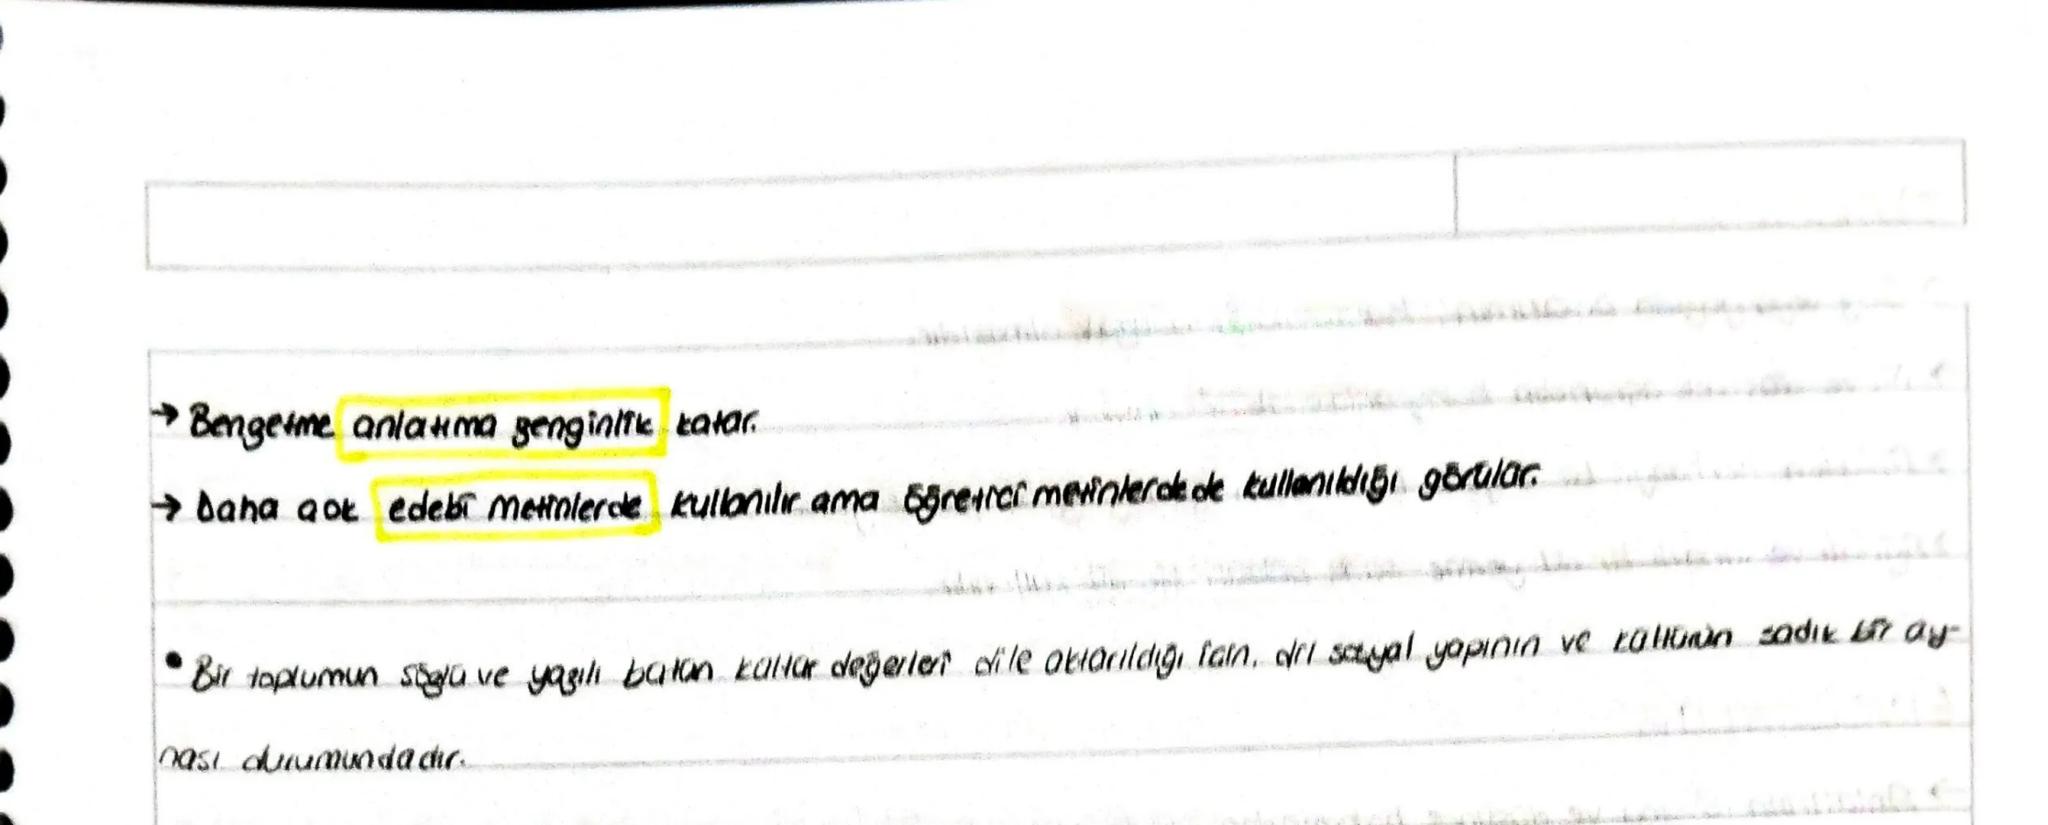 → Benzetme anlatıma zenginlik katar.
→ Daha çok edebi metinlerde kullanılır ama öğretici metinlerde de kullanıldığı görülür.
• Bir toplumun sözlü ve yazılı bütün kültür değerleri dile aktarıldığı için, dil sosyal yapının ve kültürün sadık bir ay-
nası durumundadır.